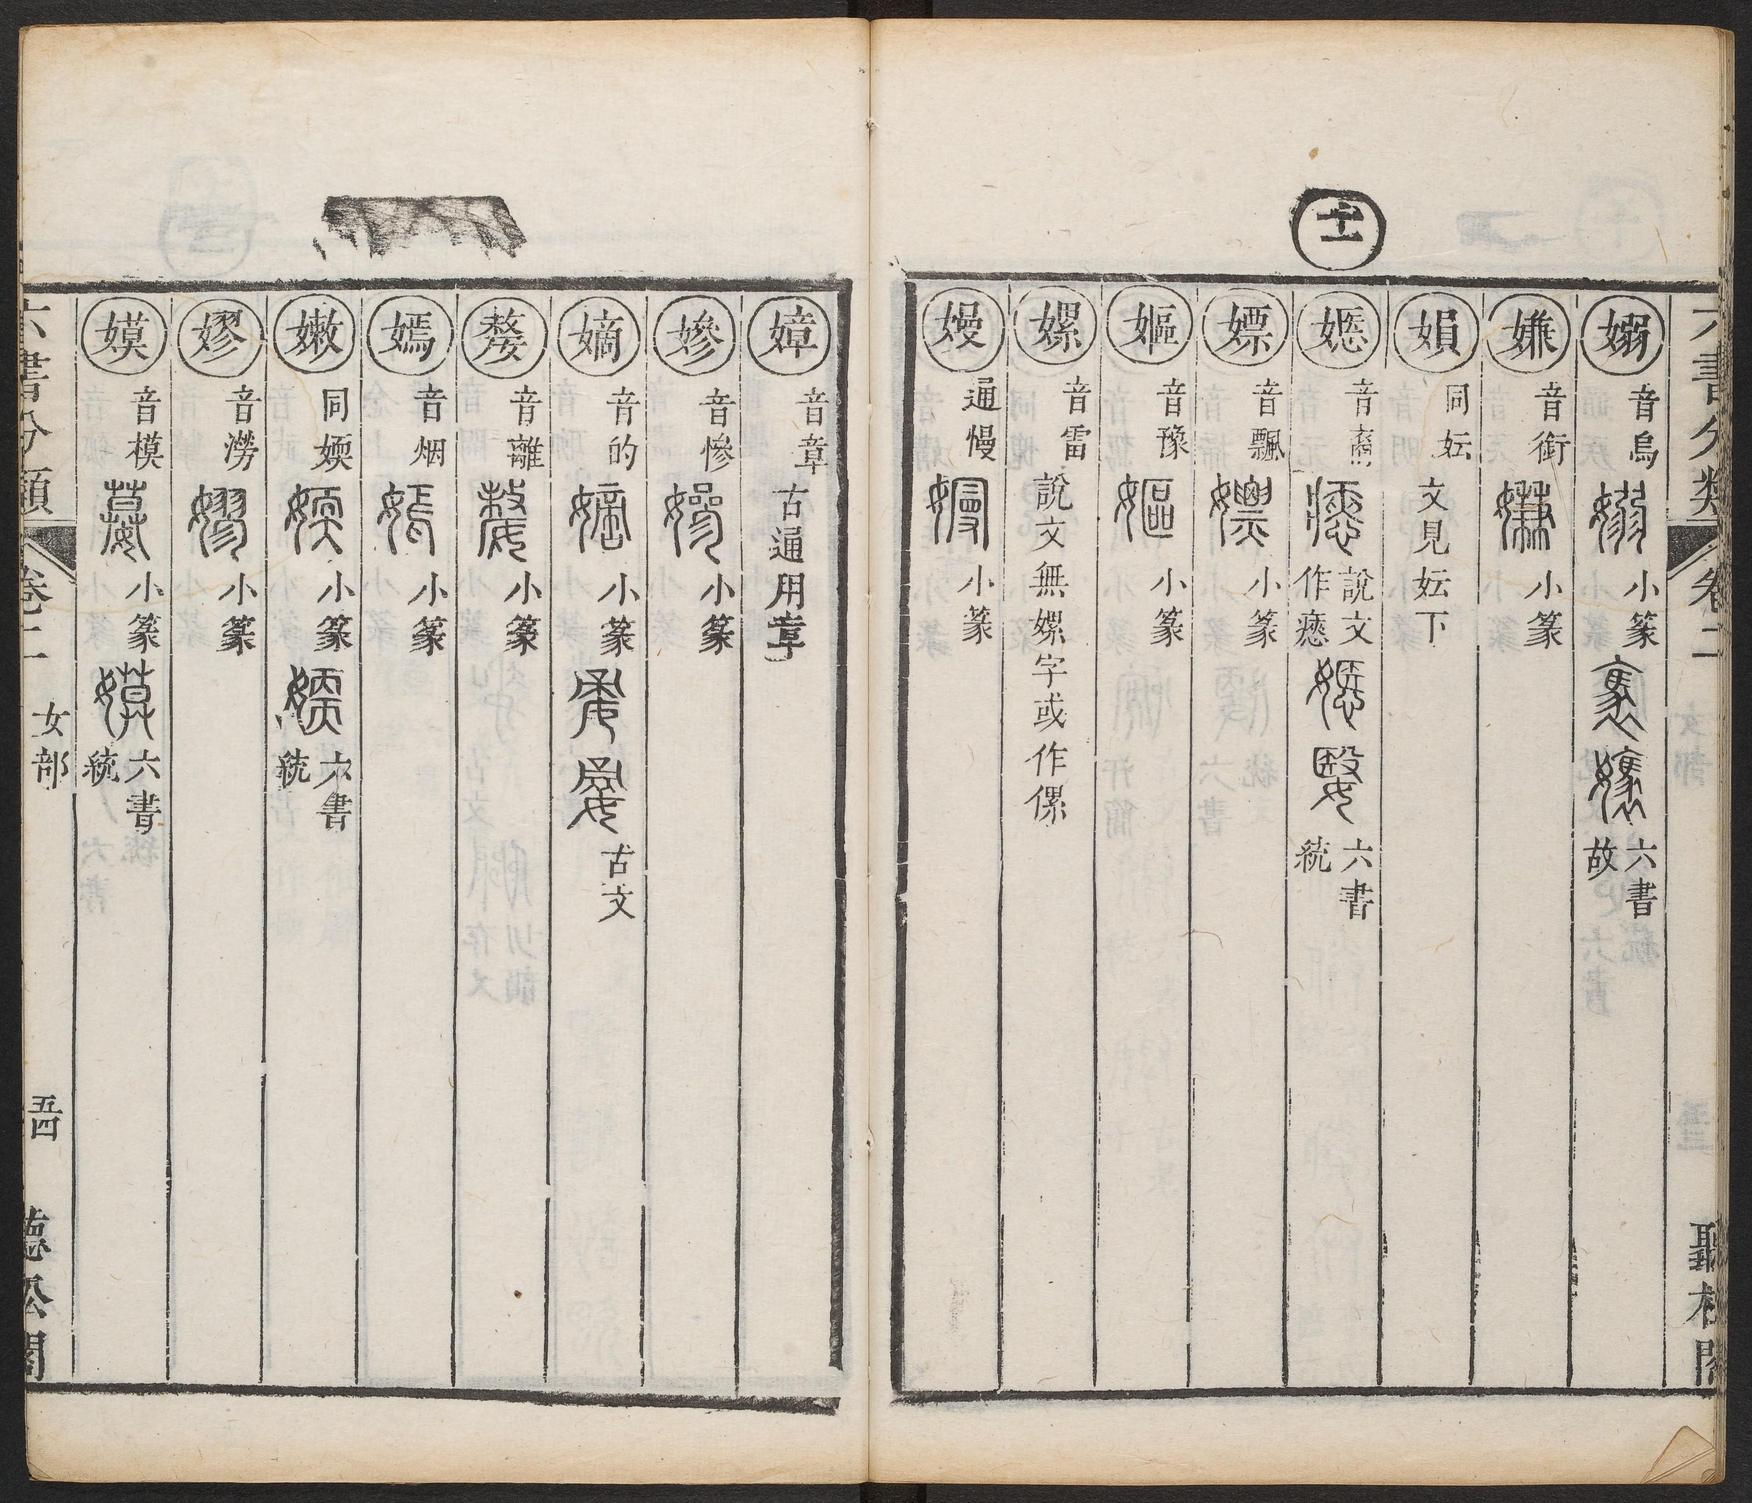 六書分類 卷二 女部 聽松閣
十一
嫋 音鳥 小篆 六書故
嫌 音銜 小篆
㛐 同妘 文見妘下
嫕 音裔 說文作㥷 六書統
嫖 音飄 小篆
嫗 音豫 小篆
嫘 音雷 說文無嫘字或作傫
嫚 通慢 小篆
嫜 音章 古通用章
嫪 音慘 小篆
嫡 音的 小篆 古文
嫠 音離 小篆
嫣 音烟 小篆
嫩 同媆 小篆 六書統
嫪 音澇 小篆
嫫 音模 小篆 六書統
六書分類 卷二 女部 五四 聽松閣